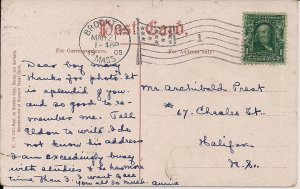 Post Card.
BROCKTON
MASS.
1
For Correspondence.
For Address only.
Dear boy many
thanks for photo. it
is splendid of you
and so good to re-
member me. Tell
to write I do
not know his address
I am exceedingly busy
with studies & he has more
time than I. I want
you all so much. Anna
Mr. Archibald Prest
#67, Charles St.
Halifax
N.S.